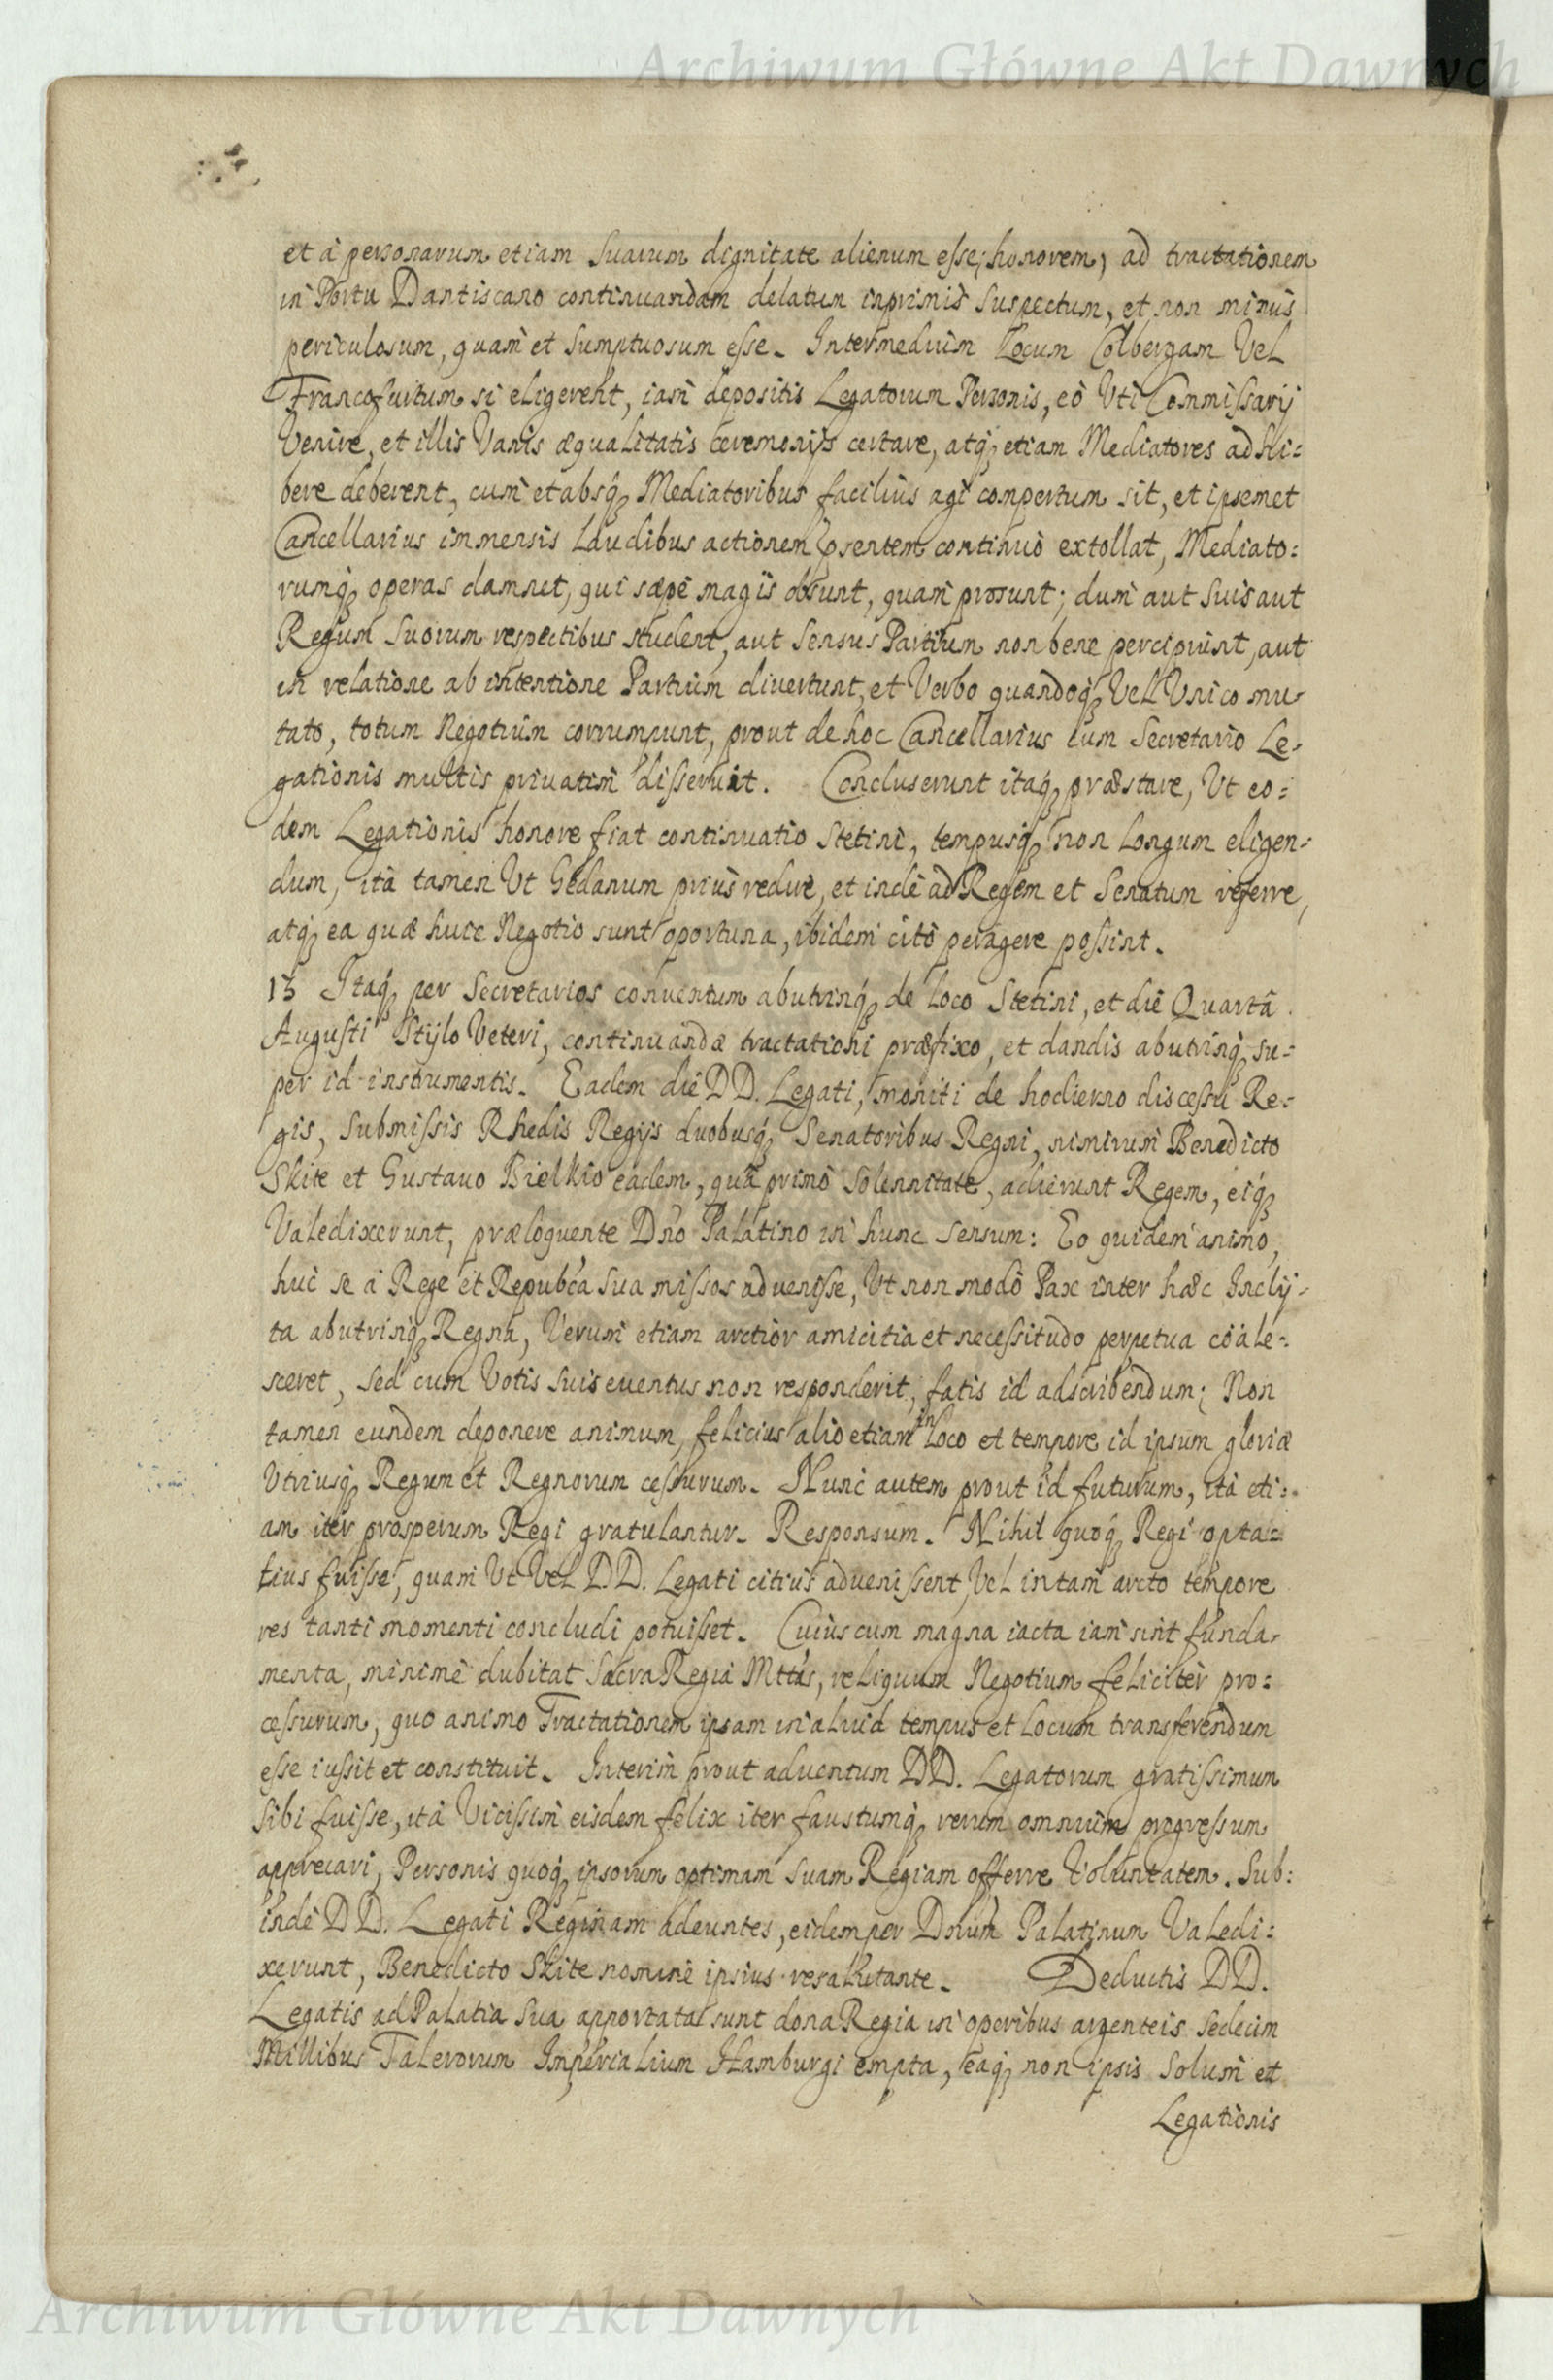 Archiwum Główne Akt Dawnych
et à personarum etiam Suarum dignitate alienum esse; honorem, ad tractationem
in Portu Dantiscano continuandam delatum inprimis Suspectum, et non minùs
periculosum, quam et Sumptuosum esse. Intermedium Locum Colbergam Vel
Francofurtum si eligerent, iam depositis Legatorum Personis, eò Uti Commissarij
Venire, et illis Vanis æqualitatis ceremonijs certare, atq; etiam Mediatores adhi:
bere deberent, cum et absq; Mediatoribus faciliùs agi compertum sit, et ipsemet
Cancellarius immensis Laudibus actionem pręsentem continuò extollat, Mediato:
rumq; operas damnet, qui sæpe magis obsunt, quam prosunt; dum aut Suis aut
Regum Suorum respectibus student, aut Sensus Partium non bene percipiunt, aut
in relatione ab intentione Partium divertunt, et Verbo quandoq; Vel Unico mu-
tato, totum Negotium corrumpunt, prout de hoc Cancellarius cum Secretario Le-
gationis multis privatim disseruit. Concluserunt itaq; præstare, Ut eo:
dem Legationis honore fiat continuatio Stetini, tempusq; non Longum eligen-
dum, ità tamen Ut Gedanum priùs redire, et inde ad Regem et Senatum referre,
atq; ea quæ huic Negotio sunt oportuna, ibidem citò peragere possint.
13 Itaq; per Secretarios conventum abutrinq; de Loco Stetini, et die Quartâ
Augusti Stijlo Veteri, continuandæ tractationi præfixo, et dandis abutrinq; su-
per id instrumentis. Eadem die DD. Legati, moniti de hodierno discessu Re-
gis, Submissis Rhedis Regijs duobusq; Senatoribus Regni, nimirum Benedicto
Skite et Gustavo Bielkio eâdem, quâ primò Solennitate, adierunt Regem, eiq;
Valedixerunt, præloquente Dno Palatino in hunc sensum: Eo quidem animo,
huc se à Rege et Repubca sua missos advenisse, Ut non modò Pax inter hæc Incly-
ta abutrinq; Regna, Verum etiam arctior amicitia et necessitudo perpetua coale-
sceret, Sed cum Votis Suis eventus non responderit, fatis id adscribendum; Non
tamen eundem deponere animum, feliciùs alio etiam in Loco et tempore id ipsum gloriæ
Utriusq; Regum et Regnorum cessurum. Nunc autem prout id futurum, ità eti:
am iter prosperum Regi gratulantur. Responsum. Nihil quoq; Regi opta:
tius fuisse, quam Ut Vel DD. Legati citiùs advenissent, Vel in tam arcto tempore
res tanti momenti concludi potuisset. Cuius cum magna iacta iam sint funda-
menta, minimè dubitat Sacra Regia Mttas, reliquum Negotium feliciter pro:
cessurum, quo animo Tractationem ipsam in aliud tempus et Locum transferendum
esse iussit et constituit. Interim prout adventum DD. Legatorum gratissimum
Sibi fuisse, ità Vicissim eisdem felix iter faustumq; rerum omnium progressum
apprecari, Personis quoq; ipsorum optimam suam Regiam offerre Voluntatem. Sub:
inde DD. Legati Reginam adeuntes, eidem per Dnum Palatinum Valedi:
xerunt, Benedicto Skite nomine ipsius resalutante. Deductis DD.
Legatis ad Palatia Sua apportata sunt dona Regia in operibus argenteis Sedecim
Millibus Talerorum Imperialium Hamburgi empta, eaq; non ipsis Solum et
Legationis
Archiwum Główne Akt Dawnych